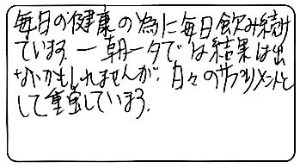 毎日の健康の為に毎日飲み続け
ています。一朝一夕では結果は出
ないかもしれませんが、日々のサプリメントと
して重宝しています。